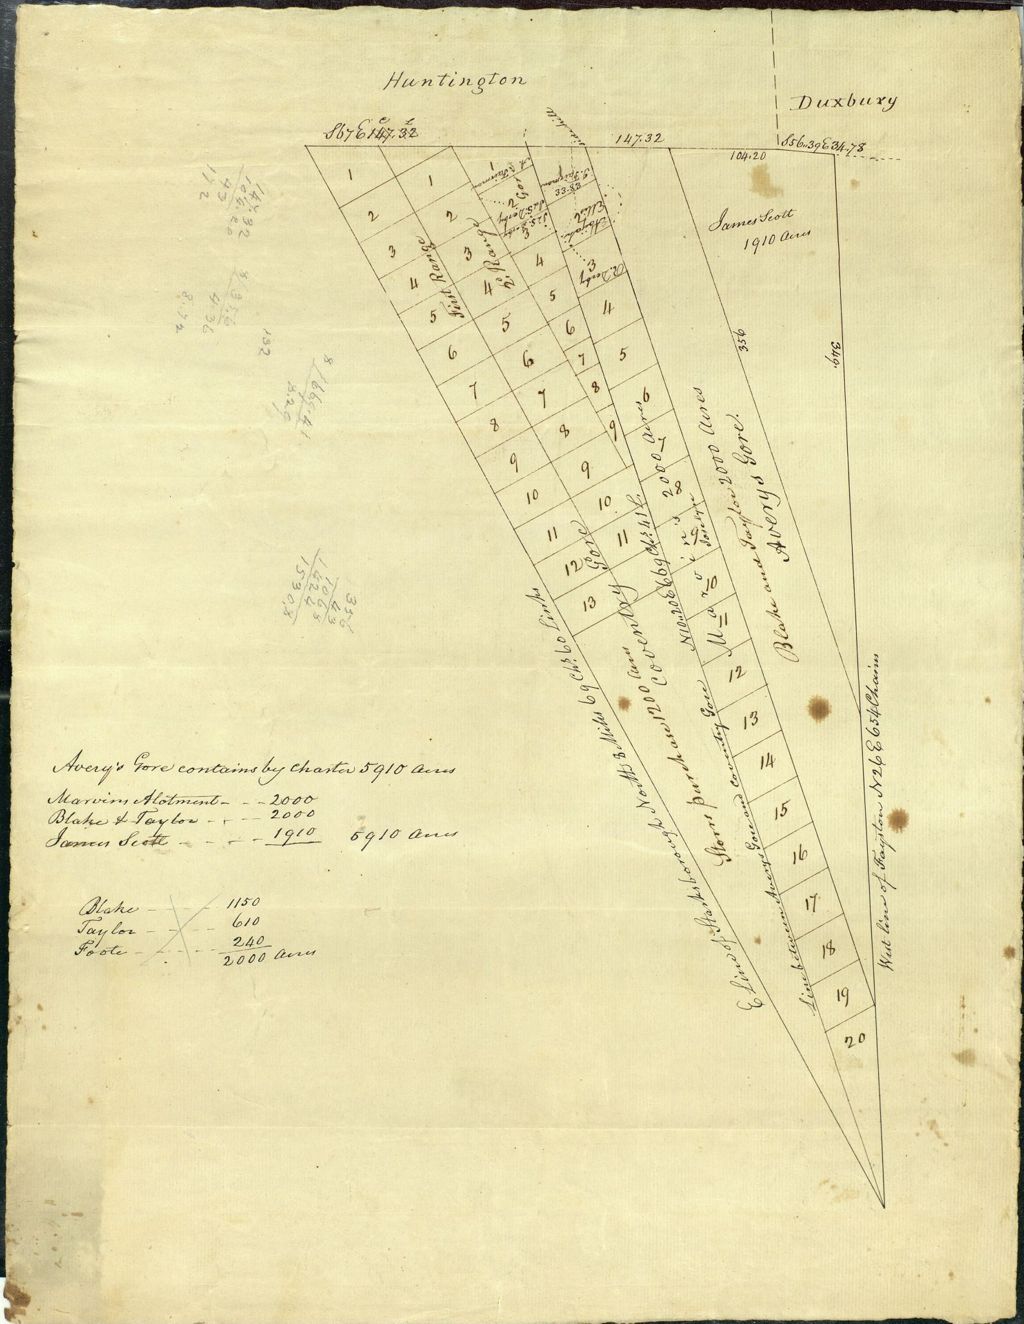 Huntington
Duxbury
S67E 147.32
147.32
104.20
S56.39E34.78
James Scott
1910 Acres
1
2
3
4
5
6
7
8
9
10
11
12
13
First Range
1
2
3
4
5
6
7
8
9
10
11
2d Range
1
2
4
5
6
7
8
9
3
4
5
6
7
8
9
10
11
12
13
14
15
16
17
18
19
20
356
349.
Marvin's 2000 Acres
Blake and Taylor 2000 Acres
Averys Gore.
Coventry Gore
Storrs purchase 1200 Acres
E Line of Starksborough North 8 Miles 69 Chs. 60 Links
Line between Averys Gore and Coventry Gore
West line of Fayston N26E 654 Chains
Avery's Gore contains by Charter 5910 Acres
Marvins Alotment - - - 2000
Blake & Taylor - - - - 2000
James Scott - - - - 1910 5910 Acres
Blake - - - 1150
Taylor - - - 610
Foote - - - - 240
2000 Acres
132
356
43
1068
1424